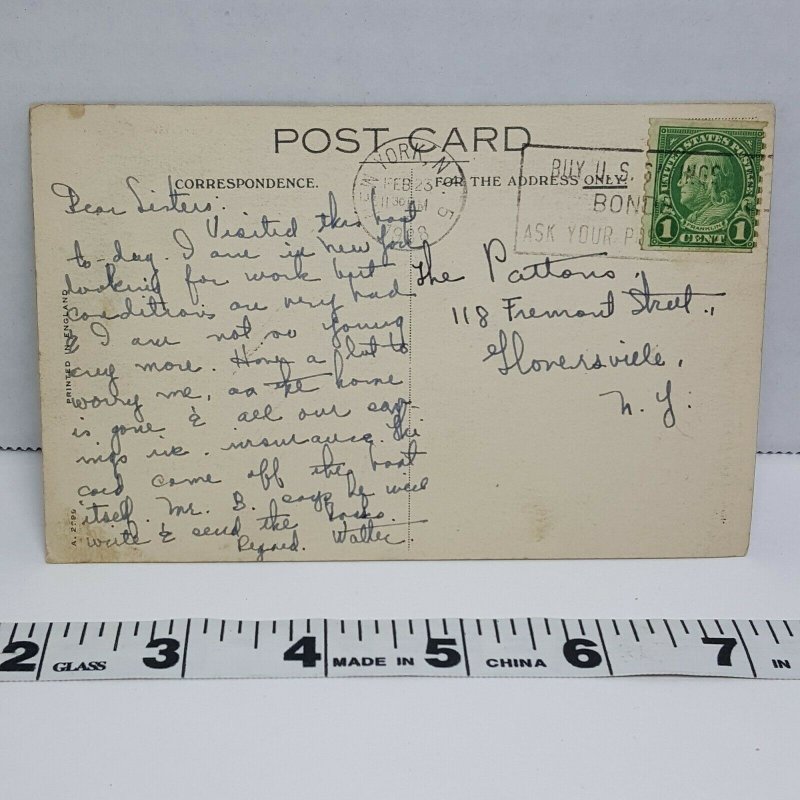 POST CARD
CORRESPONDENCE.
FOR THE ADDRESS ONLY.
YORK, N.
FEB 23
5
BUY U.S. S INGS
BON
ASK YOUR P
UNITED STATES POSTAGE
FRANKLIN
1 CENT 1
Dear Sisters:
Visited this boat
to-day. I are in New York
looking for work but
conditions are very bad
& I are not so young
any more. Have a lot to
worry me, as the home
is gone & all our sav-
ings in insurance. This
card came off the boat
itself. Mr. B. says he will
write & send the books.
Regard. Walter.
The Pattons,
118 Fremont Street.,
Gloversville,
N.Y.
PRINTED IN ENGLAND
A. 2799
2 GLASS 3 4 MADE IN 5 CHINA 6 7 IN